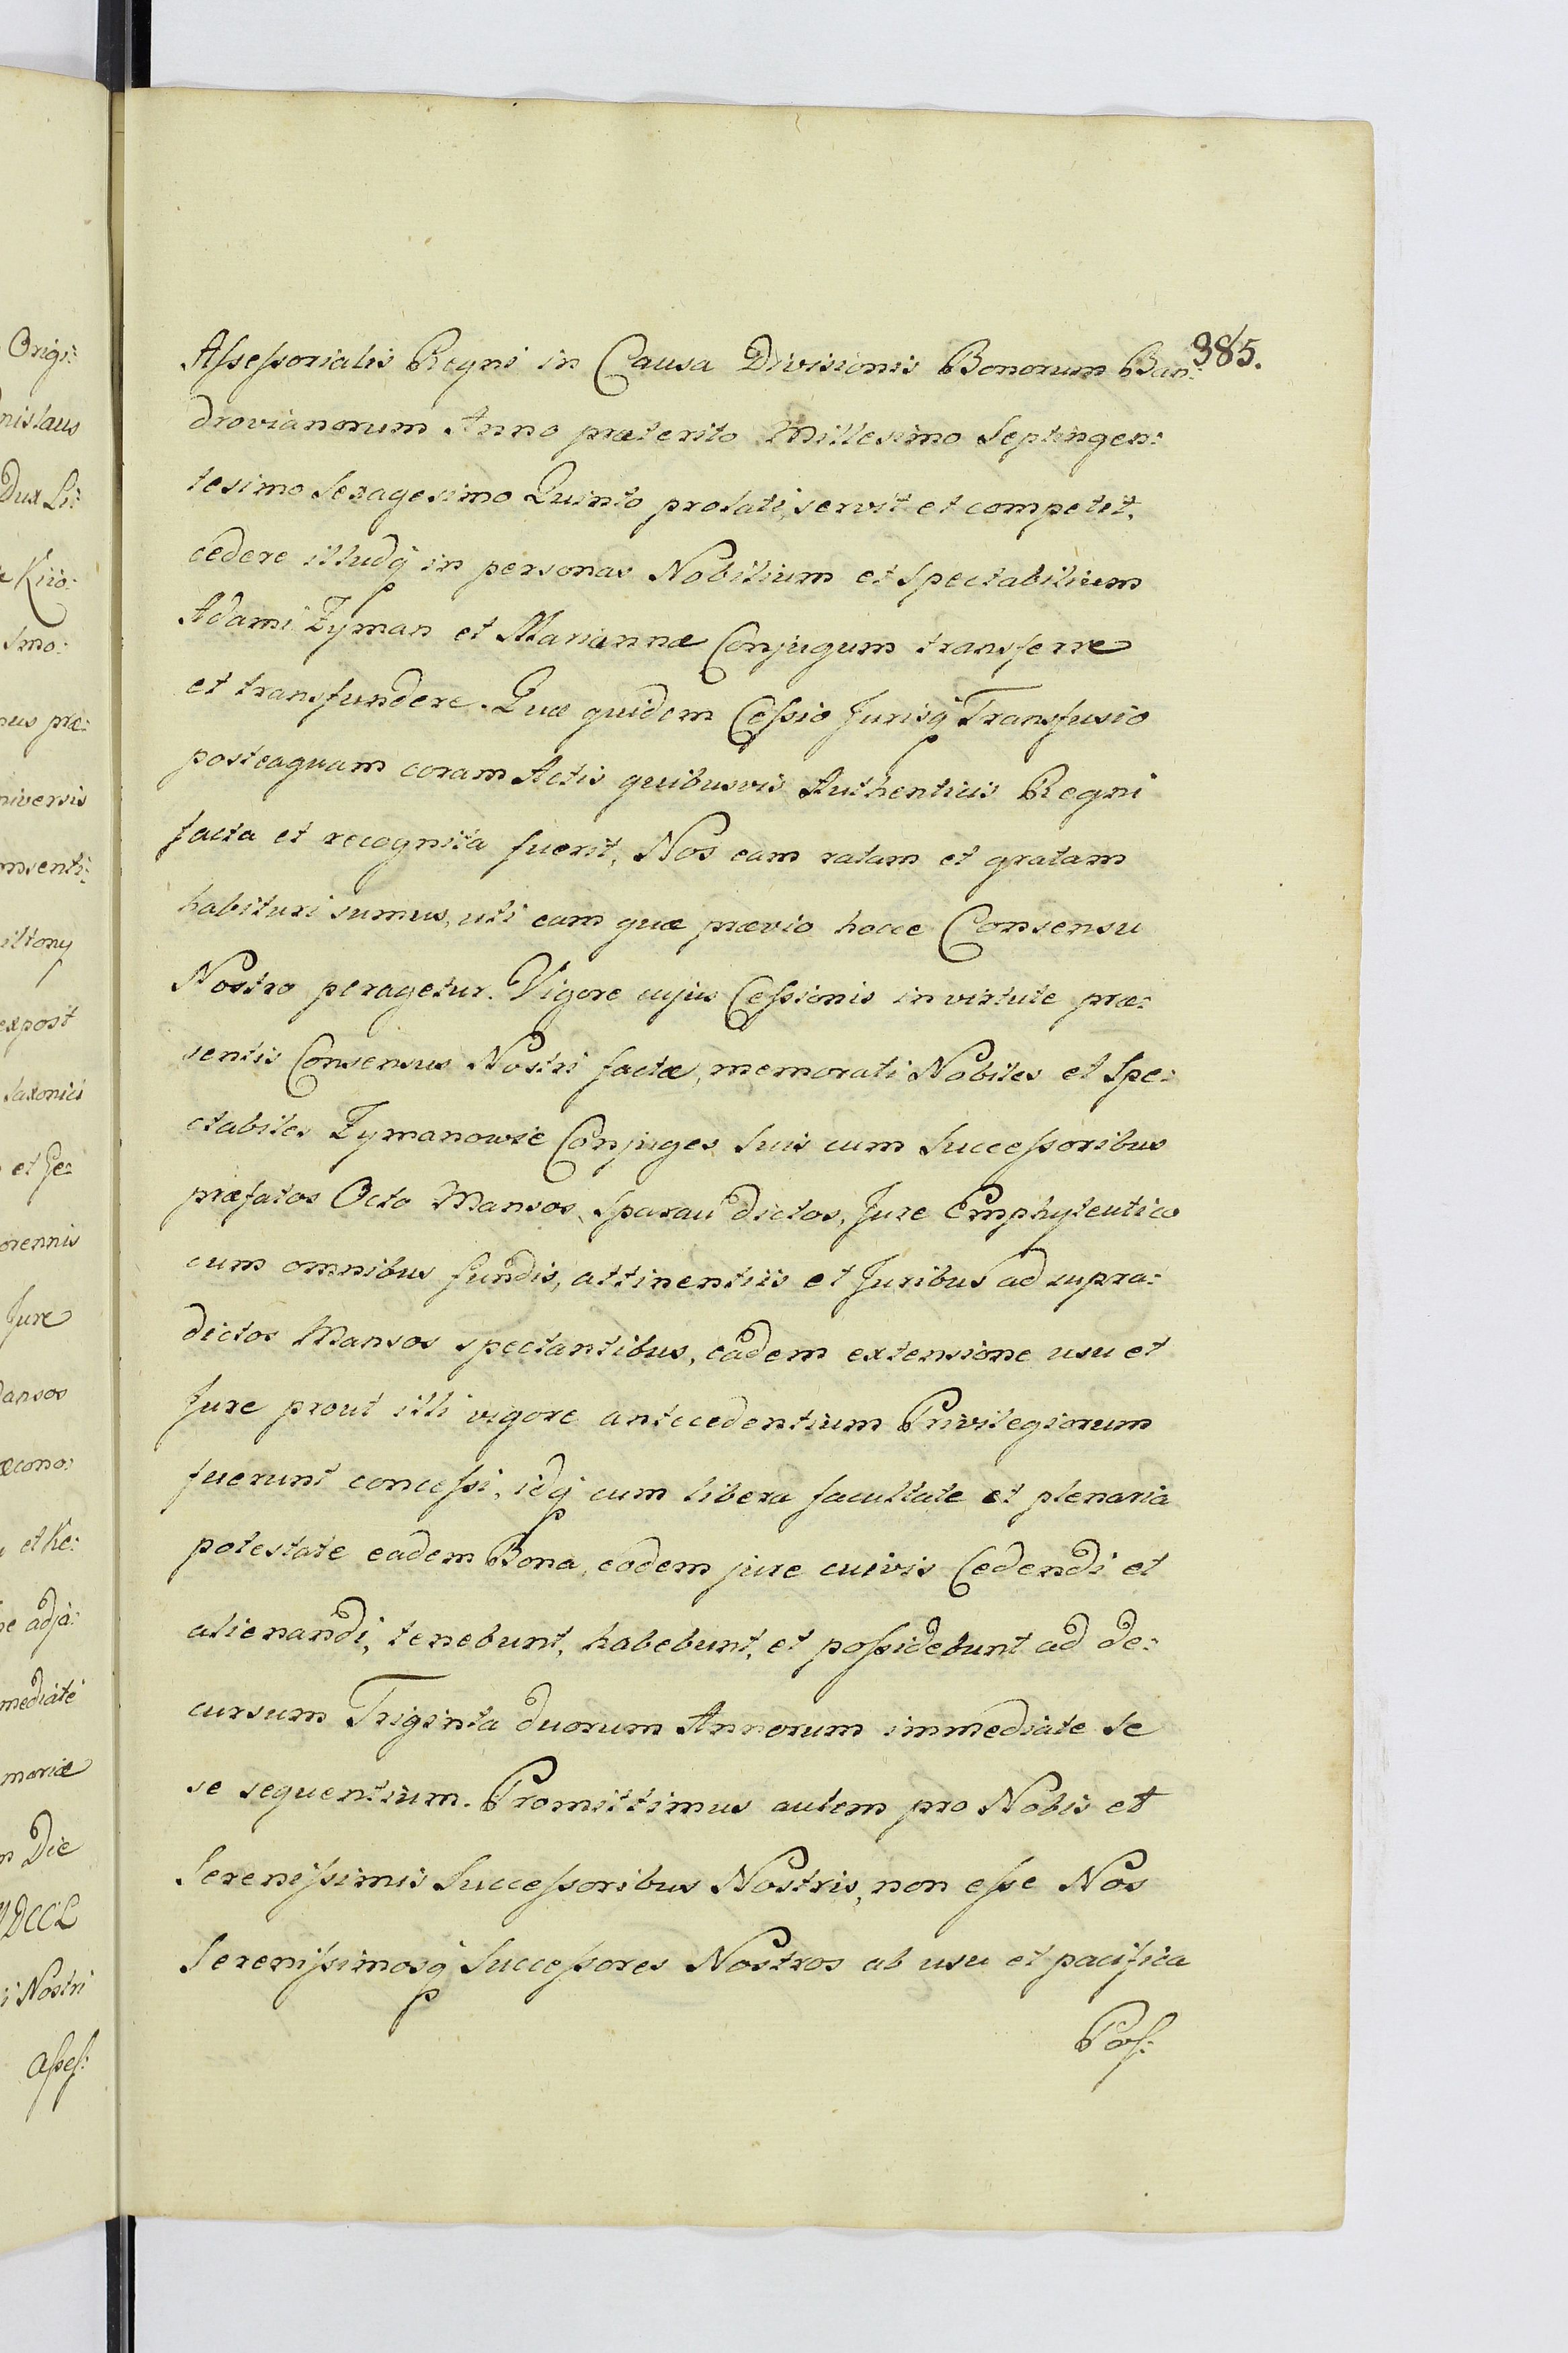 385.
Assessorialis Regni in Causa Divisionis Bonorum Ban:
drovianorum Anno præterito Millesimo Septingen:
tesimo Sexagesimo Quinto prolati, servit et competit,
cedere illudq in personas Nobilium et Spectabilium
Adami Zyman et Mariannæ Conjugum transferre
et transfundere. Quæ quidem Cessio Jurisq Transfusio
posteaquam coram Actis quibusvis Authenticis Regni
facta et recognita fuerit, Nos eam ratam et gratam
habituri sumus, uti eam quæ prævio hocce Consensu
Nostro peragetur. Vigore cujus Cessionis in virtute præ:
sentis Consensus Nostri factæ, memorati Nobiles et Spe:
ctabiles Zymanowie Conjuges suis cum Successoribus
præfatos Octo Mansos, Sparau dictos, Jure Emphyteutico
cum omnibus fundis, attinentiis et Juribus ad supra:
dictos Mansos spectantibus, eâdem extensione usu et
Jure prout illi vigore antecedentium Privilegiorum
fuerunt concessi, idq cum libera facultate et plenaria
potestate eadem Bona, eodem jure cuivis Cedendi et
alienandi, tenebunt, habebunt, et possidebunt ad de:
cursum Triginta duorum Annorum immediate se
se sequentium. Promittimus autem pro Nobis et
Serenissimis Successoribus Nostris, non esse Nos
Serenissimosq Successores Nostros ab usu et pacifica
Pos:
Origi:
nislaus
Dux Li:
Kiio:
smo:
nus præ:
niversis
nsenti:
iltony
expost
Saxonici
et Ge:
orennis
Jure
ansos
æcono:
et Re:
adja:
mediatè
moriæ
Die
DCCL
Nostri
Asses: